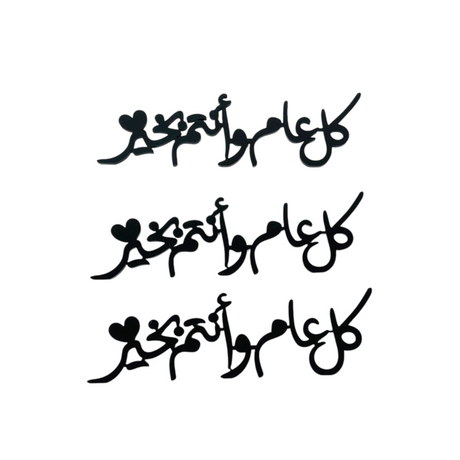 كل عام وأنتم بخير
كل عام وأنتم بخير
كل عام وأنتم بخير